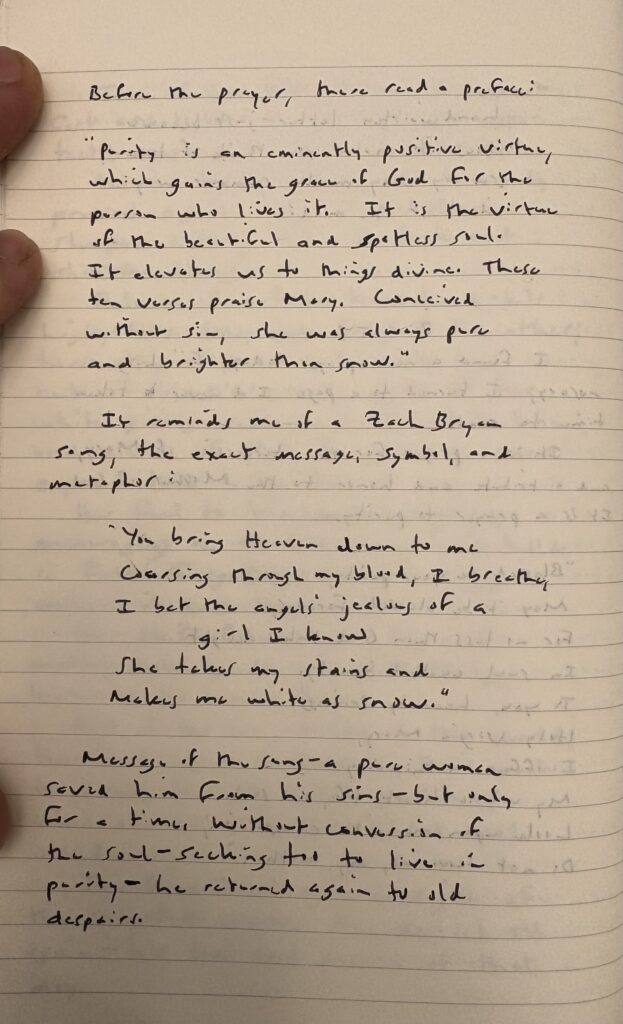 Before the prayer, there read a preface:
"Purity is an eminently positive virtue,
which gains the grace of God for the
person who lives it. It is the virtue
of the beautiful and spotless soul.
It elevates us to things divine. These
ten verses praise Mary. Conceived
without sin, she was always pure
and brighter than snow."
It reminds me of a Zach Bryan
song, the exact message, symbol, and
metaphor:
"You bring Heaven down to me
Coarsing through my blood, I breathe,
I bet the angels' jealous of a
girl I know
She takes my stains and
Makes me white as snow."
Message of the song - a pure woman
saved him from his sins - but only
for a time, without conversion of
the soul - seeking too to live in
purity - he returned again to old
despairs.